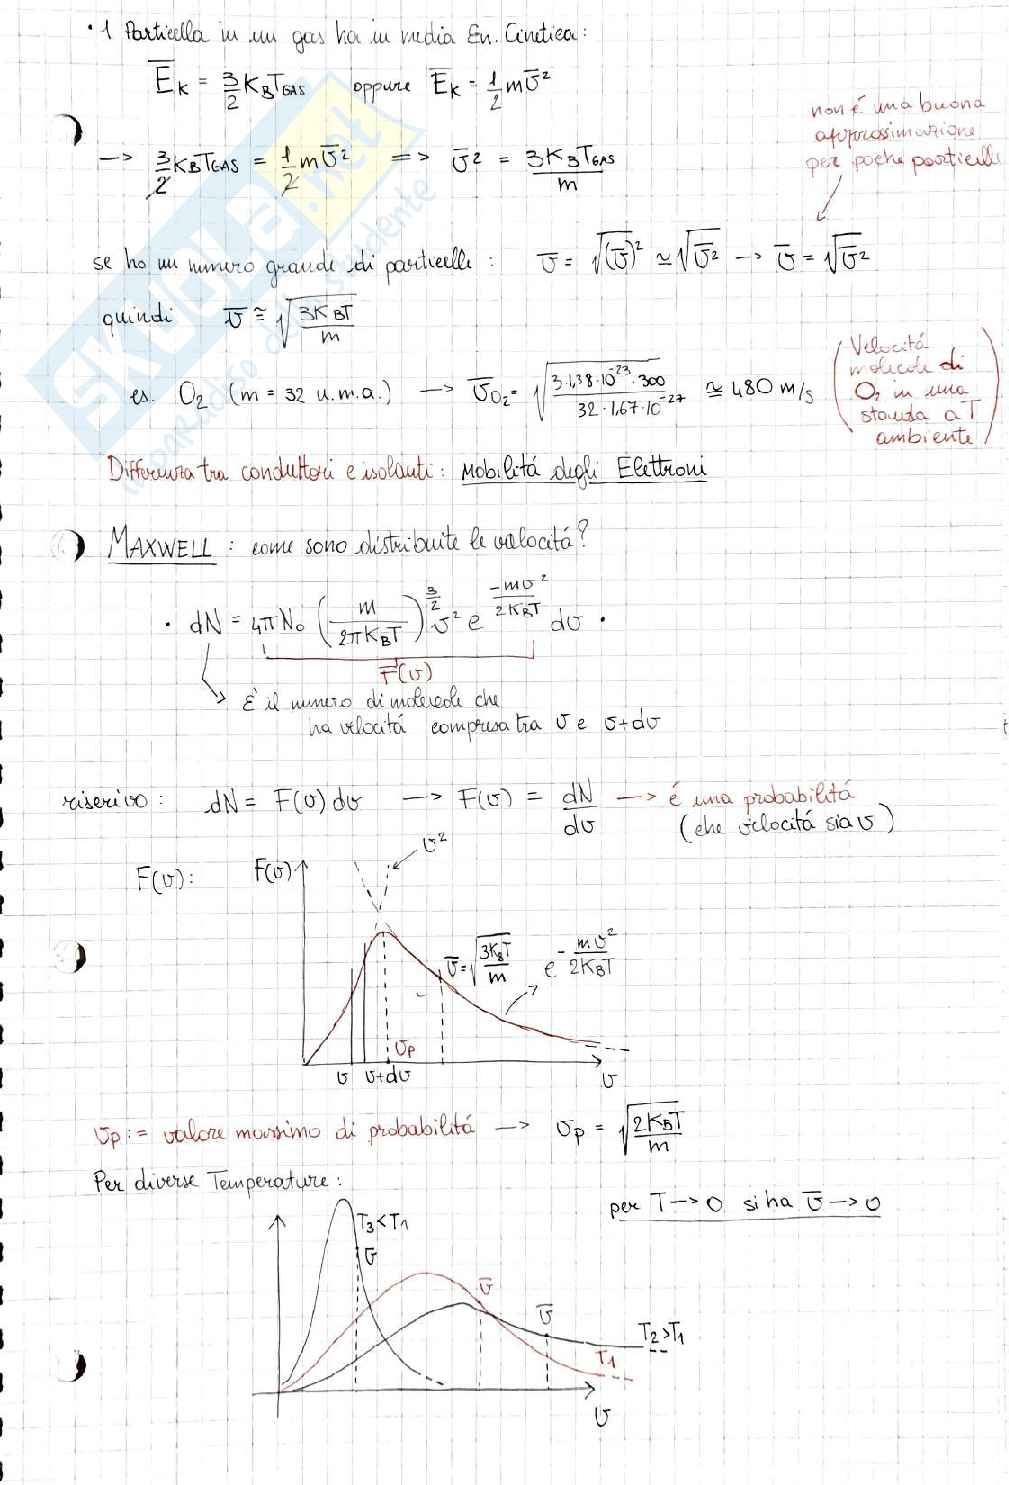 • 1 Particella in un gas ha in media En. Cinetica:
E̅K = 3/2 KBTGAS oppure E̅K = 1/2 m v̅²
non é una buona
approssimazione
per poche particelle
-> 3/2 KBTGAS = 1/2 m v̅² => v̅² = 3KBTGAS/m
se ho un numero grande di particelle : v̅ = √(v̅)² ≃ √v̅² -> v̅ = √v̅²
quindi v̅ ≅ √3KBT/m
es. O2 (m = 32 u.m.a.) -> v̅O2 = √(3·1,38·10^-23·300 / 32·1,67·10^-27) ≃ 480 m/s
(Velocitá
molecole di
O2 in una
stanza a T
ambiente)
Differenza tra conduttori e isolanti: Mobilitá degli Elettroni
MAXWELL : come sono distribuite le velocitá?
• dN = 4πN0 (m/2πKBT)^3/2 v² e^(-mv²/2KBT) dv •
F(v)
É il numero di molecole che
ha velocitá compresa tra v e v+dv
riscrivo: dN = F(v) dv -> F(v) = dN/dv -> é una probabilitá
(che velocitá sia v)
v²
F(v): F(v)
v̅ = √3KBT/m e^(-mv²/2KBT)
vp
v v+dv v
vp := valore massimo di probabilitá -> vp = √2KBT/m
Per diverse Temperature:
per T -> 0 si ha v̅ -> 0
T3<T1
v̅
v̅
v̅
T2>T1
T1
v
SKUOLA.net